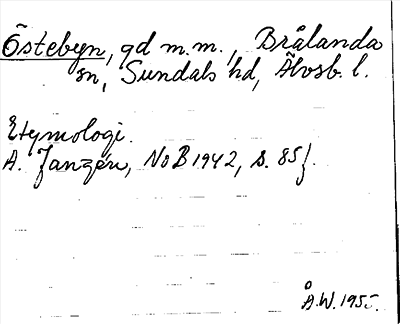 Östebyn, gd m.m., Brålanda
sn, Sundals hd, Älvsb. l.
Etymologi.
A. Janzén, NoB 1942, s. 85f.
Å.W. 1955.